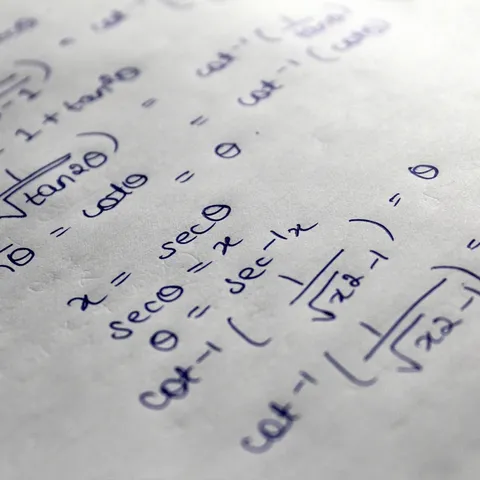 = cot⁻¹ ( 1/tanθ )
1 + tan²θ = cot⁻¹ (cotθ)
1/√tan2θ ) = θ
= cotθ
x = secθ
secθ = x
θ = sec⁻¹x
cot⁻¹ ( 1/√x2-1 ) = θ
cot⁻¹ ( 1/√x2-1 ) =